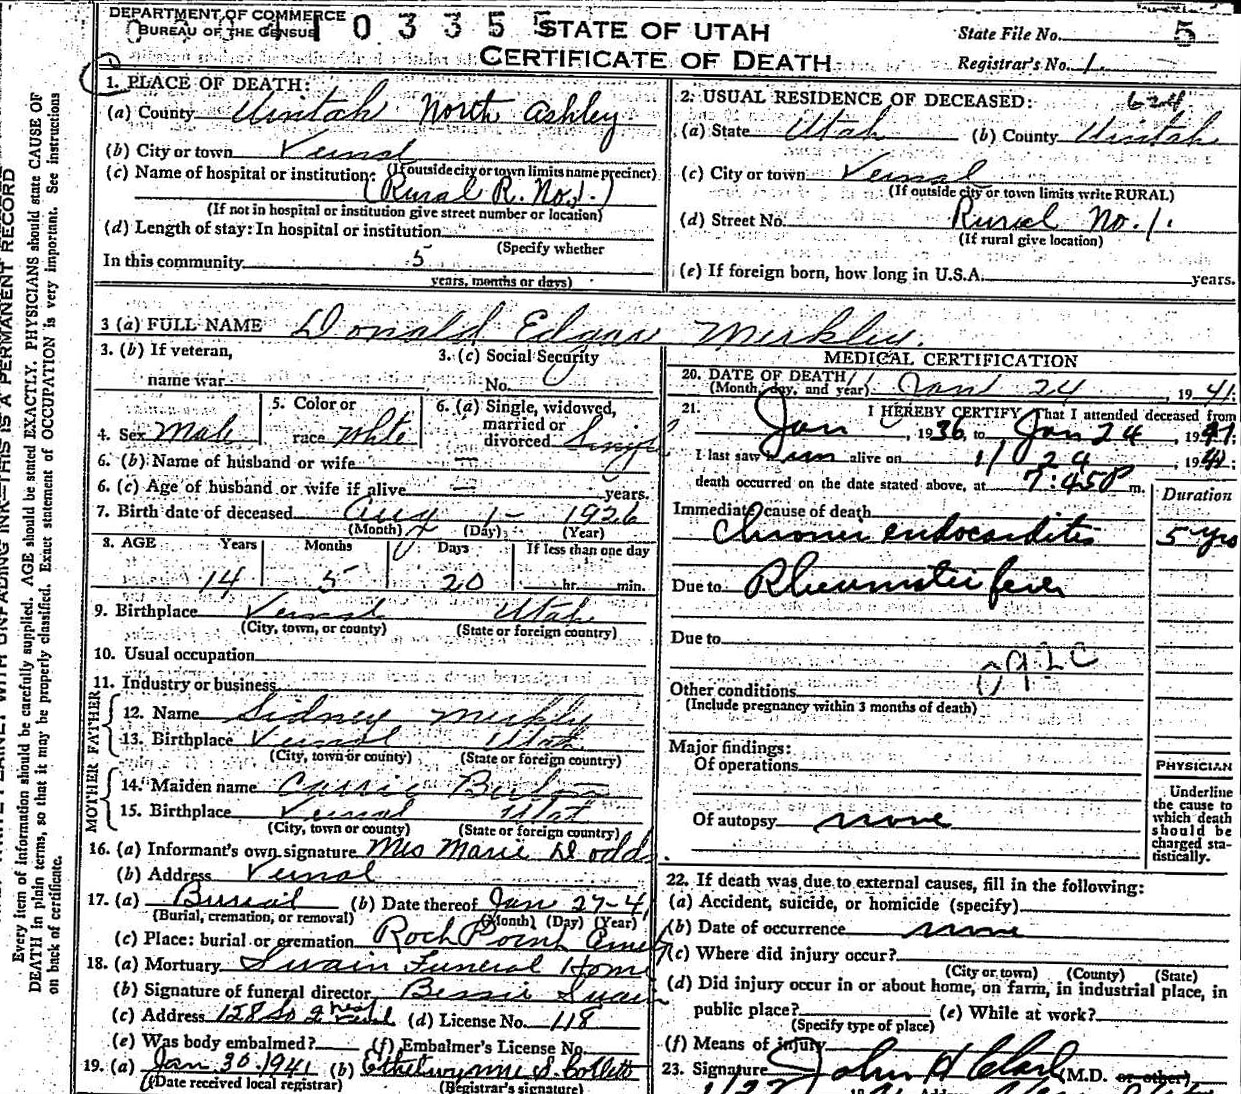 DEPARTMENT OF COMMERCE
BUREAU OF THE CENSUS
0 3 3 5 5
STATE OF UTAH
CERTIFICATE OF DEATH
State File No. 5
Registrar's No. 1
1. PLACE OF DEATH:
(a) County Uintah North Ashley
(b) City or town Vernal
(If outside city or town limits name precinct)
(c) Name of hospital or institution:
(Rural R. No. 1.)
(If not in hospital or institution give street number or location)
(d) Length of stay: In hospital or institution
(Specify whether
In this community 5
years, months or days)
2. USUAL RESIDENCE OF DECEASED: 624
(a) State Utah (b) County Uintah
(c) City or town Vernal
(If outside city or town limits write RURAL)
(d) Street No. Rural No. 1.
(If rural give location)
(e) If foreign born, how long in U.S.A. years.
3 (a) FULL NAME Donald Edgar Merkley.
3. (b) If veteran,
name war
3. (c) Social Security
No.
4. Sex Male
5. Color or
race White
6. (a) Single, widowed,
married or
divorced Single
6. (b) Name of husband or wife —
6. (c) Age of husband or wife if alive — years.
7. Birth date of deceased Aug 1- 1926
(Month) (Day) (Year)
8. AGE Years Months Days If less than one day
14 5 20 hr. min.
9. Birthplace Vernal Utah
(City, town, or county) (State or foreign country)
10. Usual occupation
11. Industry or business
FATHER
12. Name Sidney Merkly
13. Birthplace Vernal Utah
(City, town or county) (State or foreign country)
MOTHER
14. Maiden name Carrie
15. Birthplace Vernal Utah
(City, town or county) (State or foreign country)
16. (a) Informant's own signature Mrs Marie Dodds
(b) Address Vernal
17. (a) Burial (b) Date thereof Jan 27-41
(Burial, cremation, or removal) (Month) (Day) (Year)
(c) Place: burial or cremation Rock Point Cemet
18. (a) Mortuary Swain Funeral Home
(b) Signature of funeral director Bessie Swain
(c) Address 128 So 2 (d) License No. 118
(e) Was body embalmed? (f) Embalmer's License No.
19. (a) Jan 30, 1941 (b) Ethelwynne S. Collett
(Date received local registrar) (Registrar's signature)
MEDICAL CERTIFICATION
20. DATE OF DEATH
(Month, day, and year) Jan 24 1941;
21. I HEREBY CERTIFY That I attended deceased from
Jan, 1936, to Jan 24, 1941;
I last saw him alive on 1/ 24, 1941;
death occurred on the date stated above, at 7:45 P m.
Duration
Immediate cause of death
Chronic endocarditis 5 yrs
Due to Rheumatic fever
Due to
Other conditions
(Include pregnancy within 3 months of death)
Major findings:
Of operations
Of autopsy none
PHYSICIAN
Underline
the cause to
which death
should be
charged sta-
tistically.
22. If death was due to external causes, fill in the following:
(a) Accident, suicide, or homicide (specify)
(b) Date of occurrence none
(c) Where did injury occur?
(City or town) (County) (State)
(d) Did injury occur in or about home, on farm, in industrial place, in
public place? (e) While at work?
(Specify type of place)
(f) Means of injury
23. Signature John H Clark (M.D. or other)
Every item of information should be carefully supplied. AGE should be stated EXACTLY. PHYSICIANS should state CAUSE OF
DEATH in plain terms, so that it may be properly classified. Exact statement of OCCUPATION is very important. See instructions
on back of certificate.
WITH UNFADING INK—THIS IS A PERMANENT RECORD